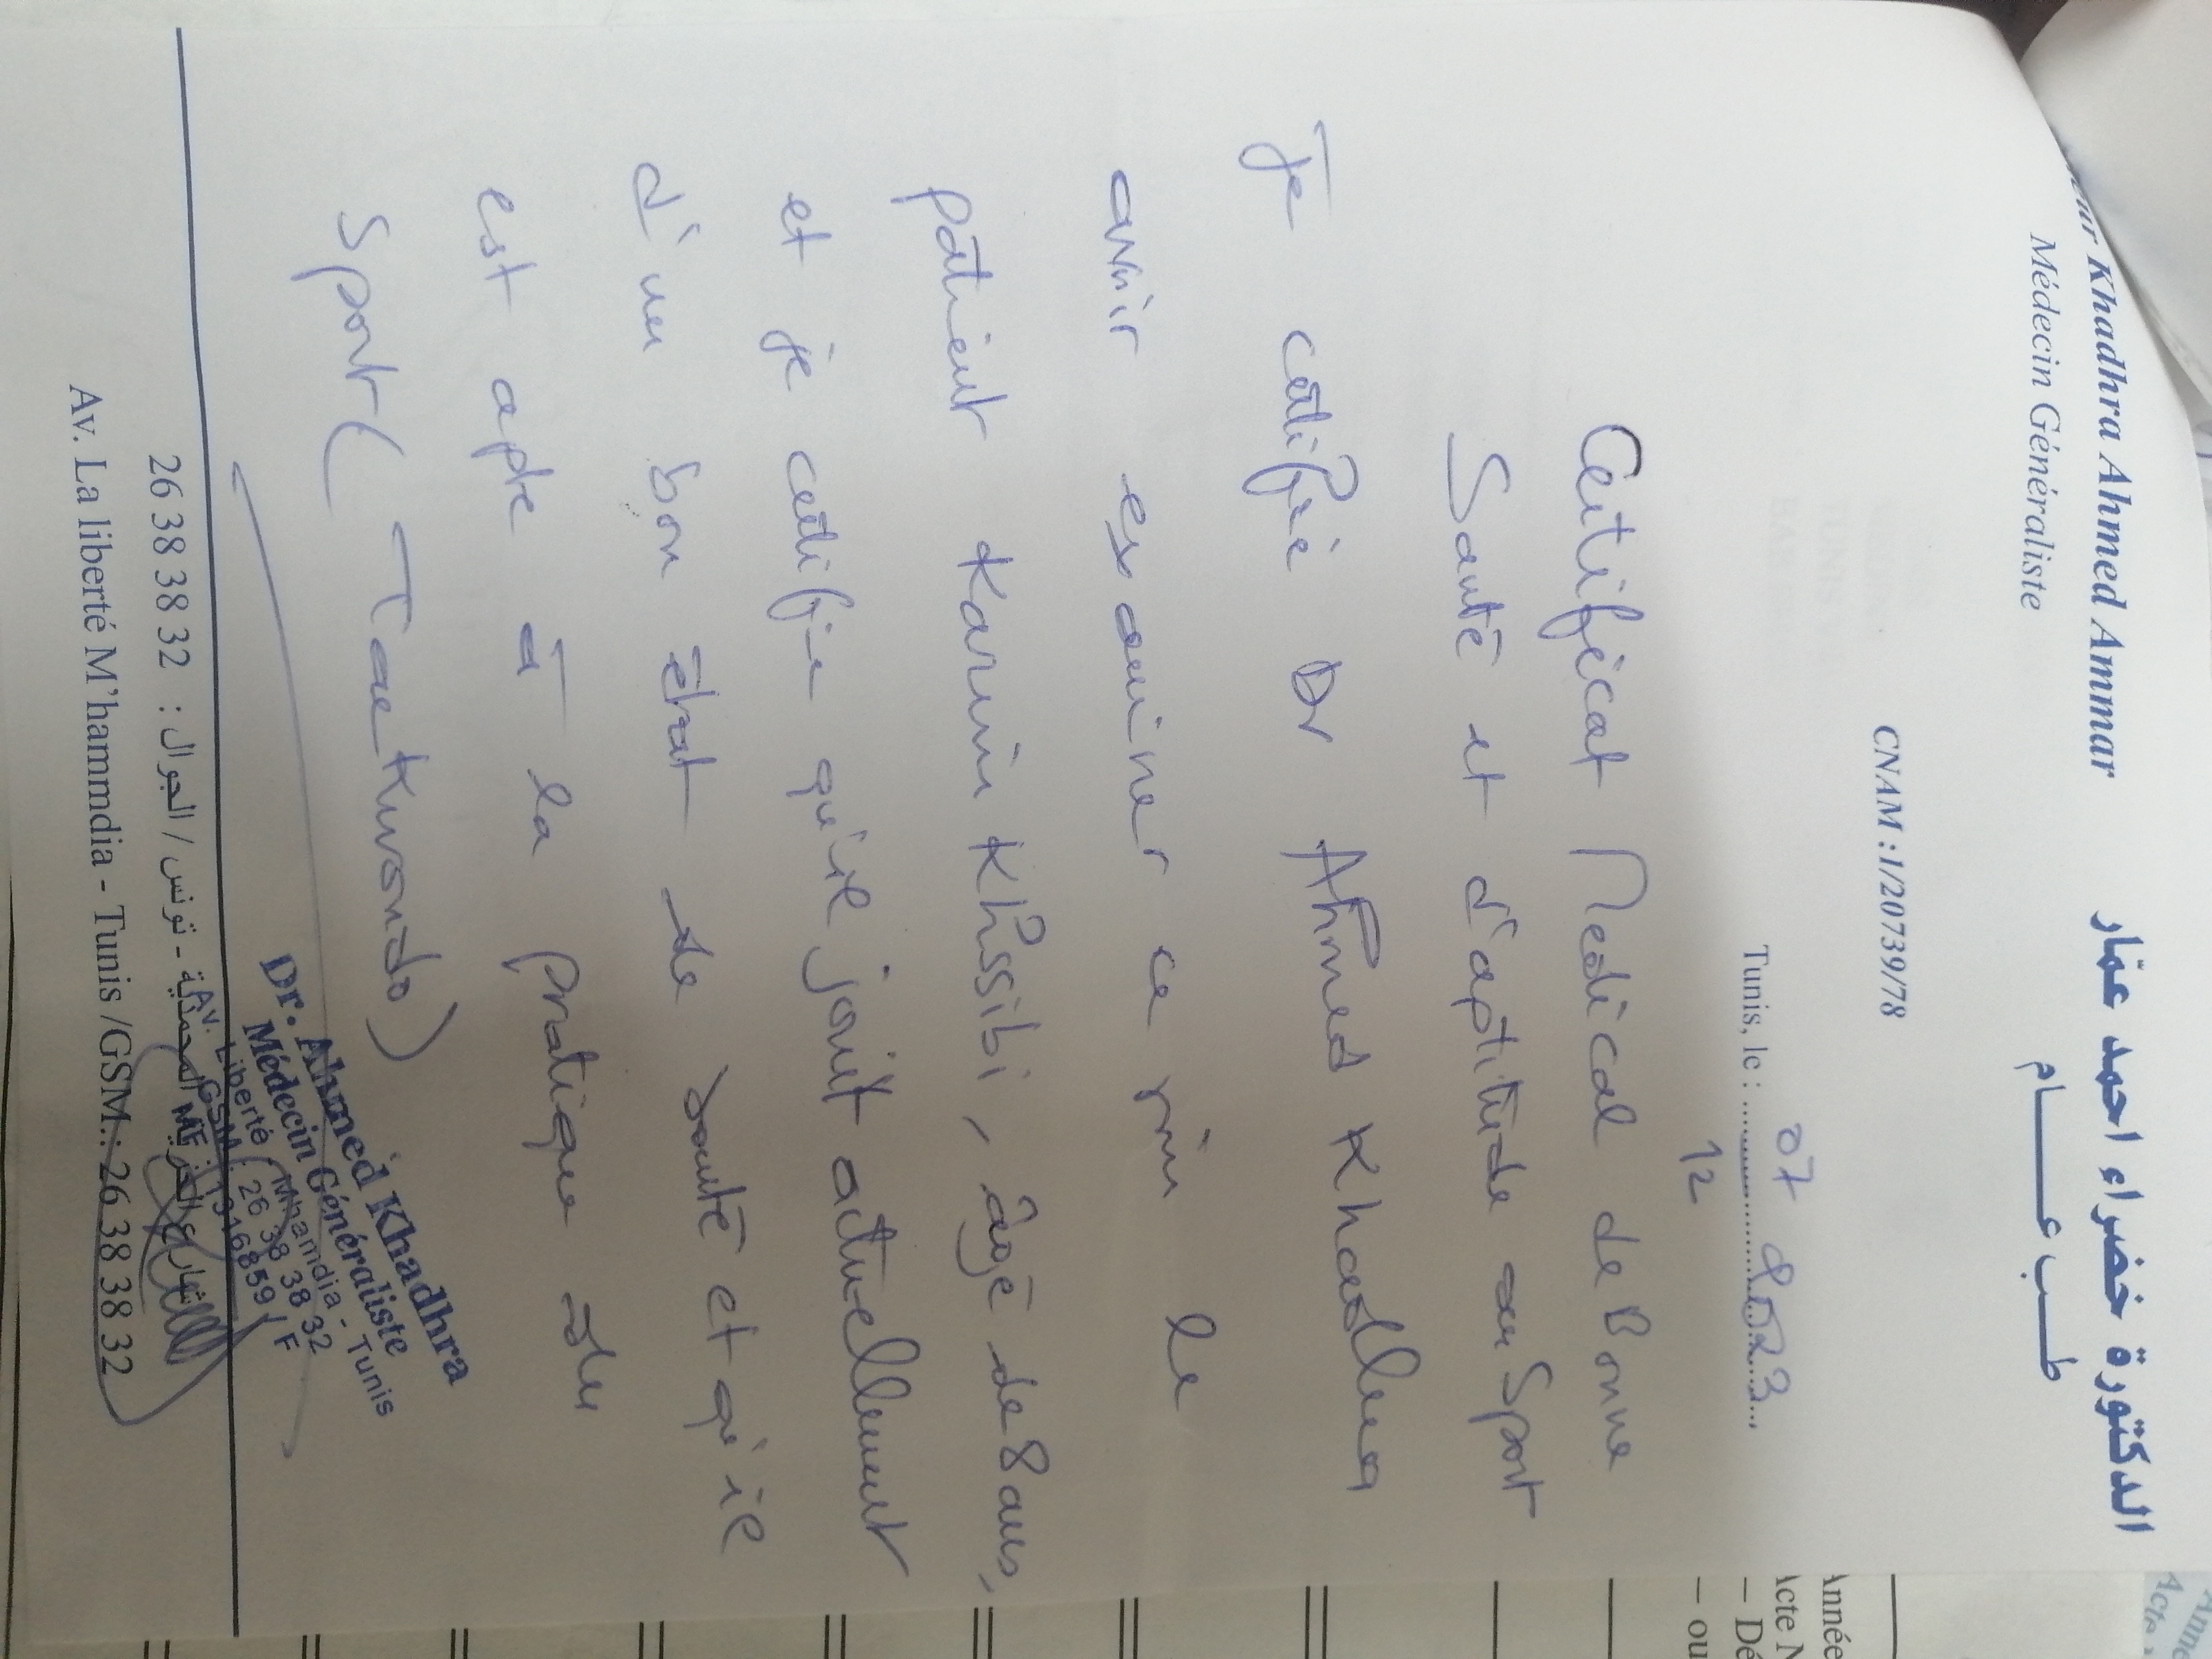 Khadhra Ahmed Ammar الدكتورة خضراء احمد عمّار
Médecin Généraliste طـــب عـــــام
CNAM : 1/20739/78
Tunis, le : 07 2023
12
Certificat Médical de Bonne
Santé et d'aptitude au Sport
Je certifie Dr Ahmed Khadhra
avoir examiner ce jour le
patient Karim Khssibi, âgé de 8 ans,
et je certifie qu'il jouit actuellement
d'un bon état de santé et qu'il
est apte à la pratique du
Sport ( Taekwondo )
Dr. Ahmed Khadhra
Médecin Généraliste
Av. Liberté Mhamdia - Tunis
GSM : 26 38 38 32
شارع الحرية المحمدية - تونس / الجوال : 26 38 38 32
Av. La liberté M'hammdia - Tunis /GSM.: 26 38 38 32
Année
Acte N
– Dé
– ou